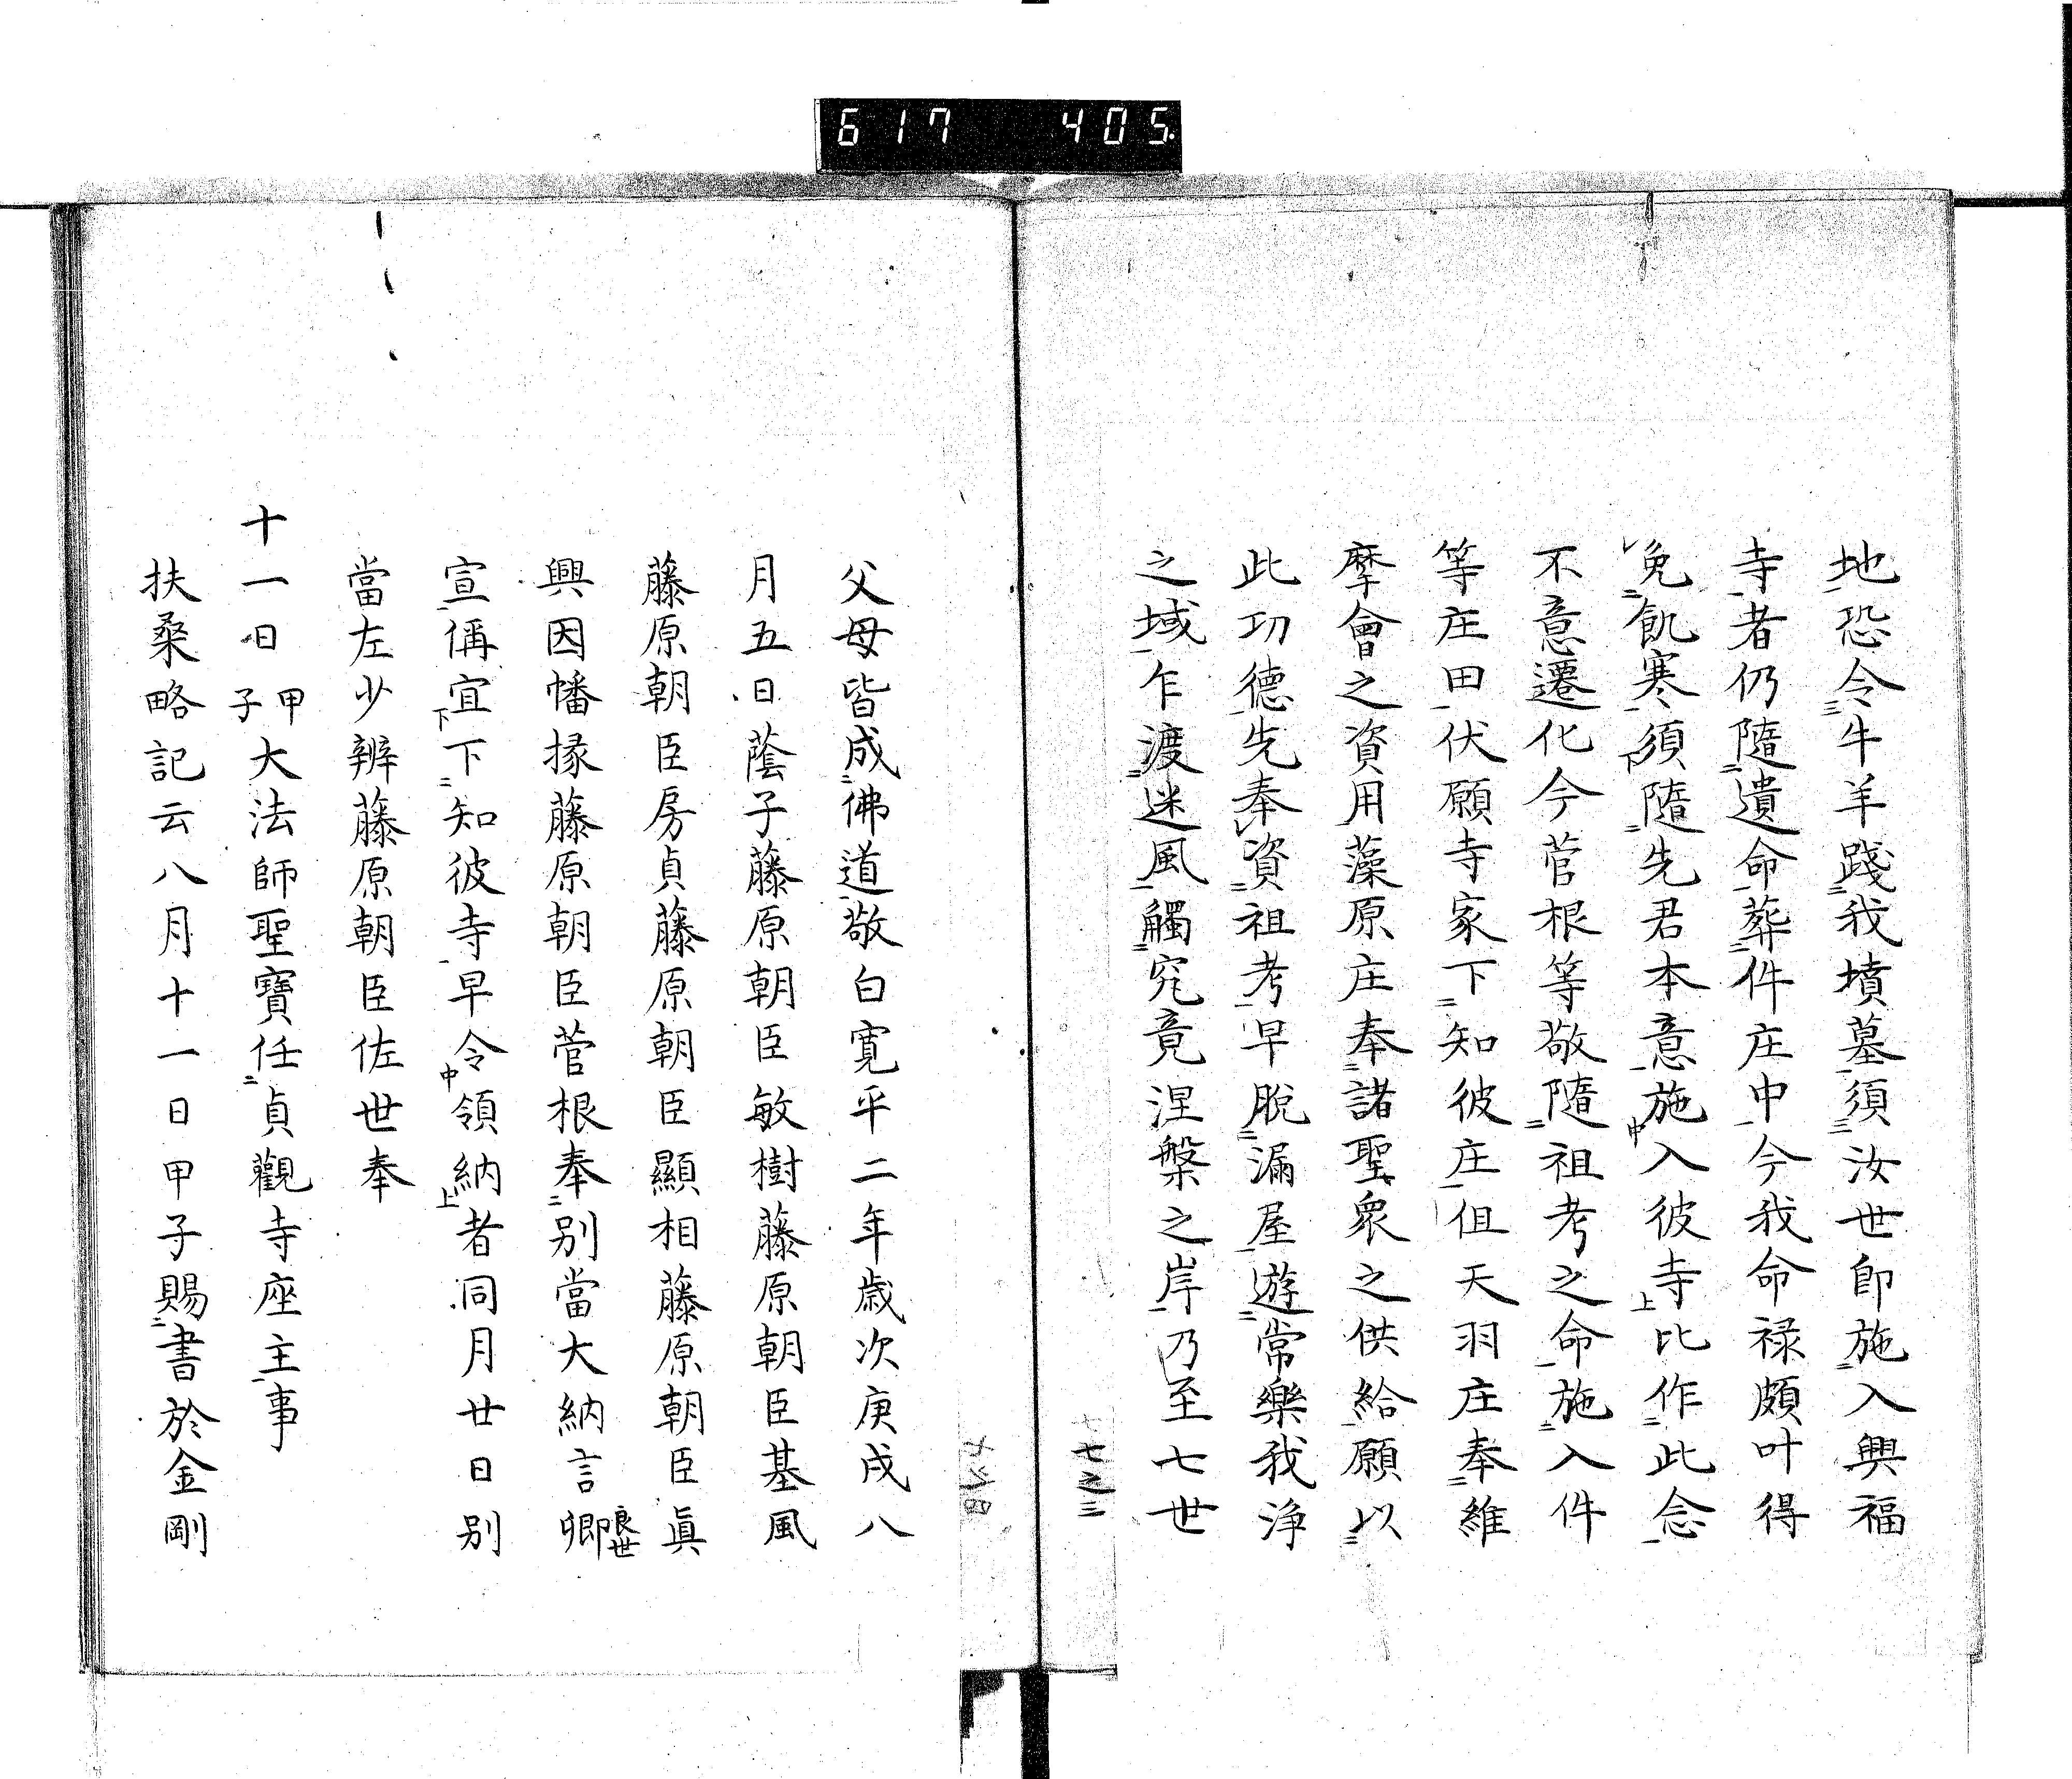 617 405
地恐令牛羊踐我墳墓須汝世即施入興福
寺者仍隨遺命葬件庄中今我命禄頗叶得
免飢寒須隨先君本意施入彼寺比作此念
不意遷化今菅根等敬隨祖考之命施入件
等庄田伏願寺家下知彼庄但天羽庄奉維
摩會之資用藻原庄奉諸聖衆之供給願以
此功德先奉資祖考早脫漏屋遊常樂我浄
之域乍渡迷風觸究竟涅槃之岸乃至七世
七之三
父母皆成佛道敬白寛平二年歳次庚戌八
月五日蔭子藤原朝臣敏樹藤原朝臣基風
藤原朝臣房貞藤原朝臣顯相藤原朝臣眞
興因幡掾藤原朝臣菅根奉別當大納言卿良世
宣偁宜下知彼寺早令領納者同月廿日別
當左少辨藤原朝臣佐世奉
十一日甲子大法師聖寶任貞觀寺座主事
扶桑略記云八月十一日甲子賜書於金剛